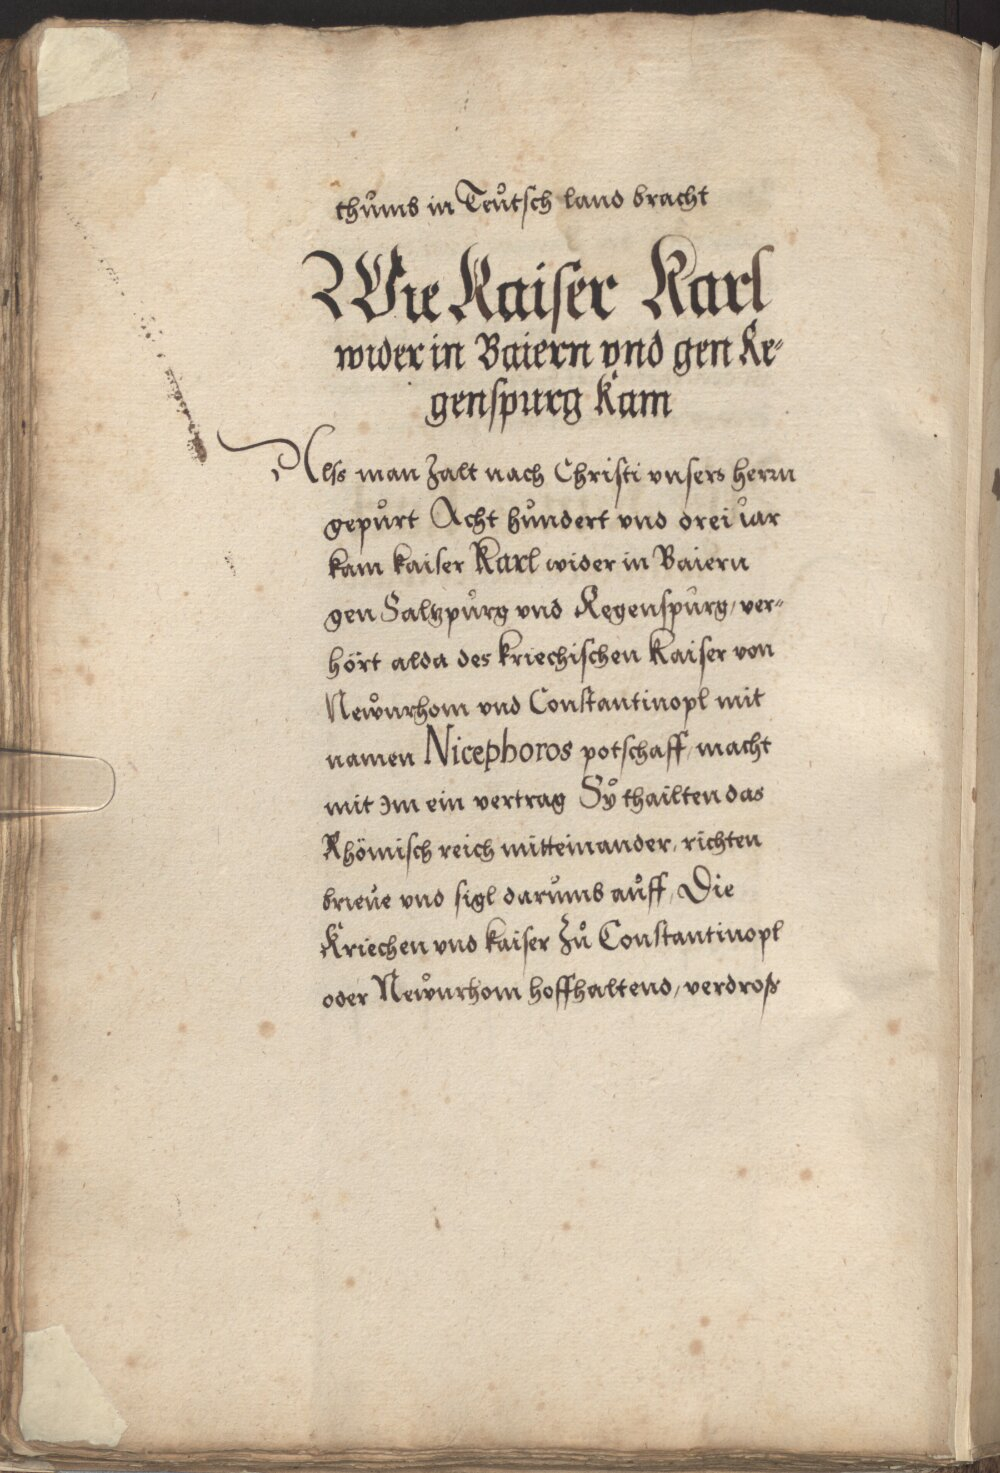 thůmb in Teůtsch land bracht
Wie Kaiser Karl
wider in Baiern vnd gen Re-
genspurg kam
Alss man zalt nach Christi vnsers herrn
gepůrt Acht hůndert vnd drei iar
kam kaiser Karl wider in Baiern
gen Saltzpůrg vnd Regenspůrg, ver-
hört alda des kriechischen Kaiser von
Newnrhom vnd Constantinopl mit
namen Nicephoros potschaff, macht
mit Im ein vertrag Sÿ thailten das
Rhömisch reich mitteinander, richten
brieue vnd sigl darůmb aůff, Die
Kriechen vnd kaiser zů Constantinopl
oder Newnrhom hoffhaltend, verdroß